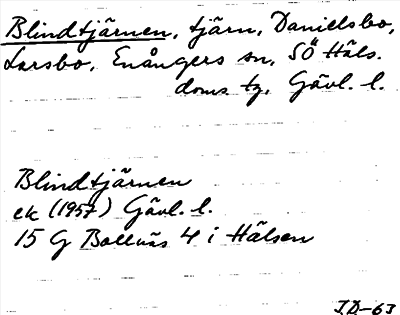 Blindtjärnen, tjärn, Danielsbo,
Larsbo, Enångers sn, SÖ Häls.
doms. tg, Gävl. l.
Blindtjärnen
ek (1957) Gävl. l.
15 G Bollnäs 4 i Hälsen
J.D-63